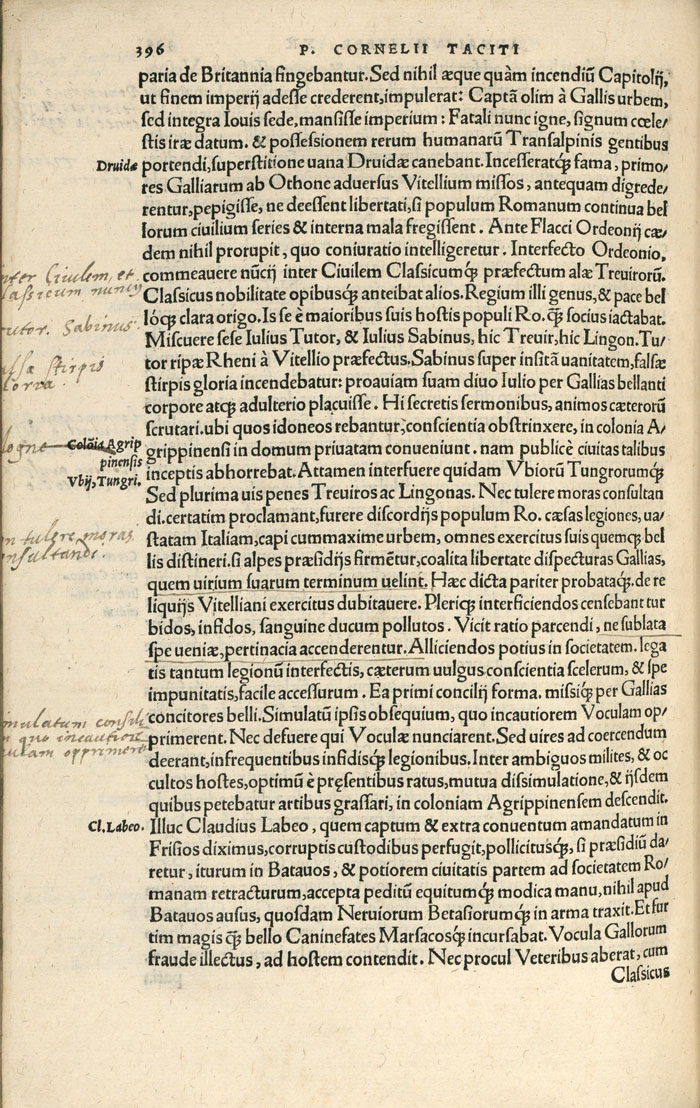 396 P. CORNELII TACITI
paria de Britannia fingebantur. Sed nihil æque quàm incendiũ Capitolij,
ut finem imperij adeſſe crederent, impulerat: Captã olim à Gallis urbem,
ſed integra Iouis ſede, manſiſſe imperium : Fatali nunc igne, ſignum cœle/
ſtis iræ datum. & poſſeſsionem rerum humanarũ Tranſalpinis gentibus
Druidæ
portendi, ſuperſtitione uana Druidæ canebant. Inceſſeratq́ꝫ fama, primo/
res Galliarum ab Othone aduerſus Vitellium miſſos, antequam digrede/
rentur, pepigiſſe, ne deeſſent libertati, ſi populum Romanum continua bel
lorum ciuilium ſeries & interna mala fregiſſent. Ante Flacci Ordeonij cæ/
dem nihil prorupit, quo coniuratio intelligeretur. Interfecto Ordeonio,
nter Ciuilem, et
laſsicum nuncij
commeauere nũcij inter Ciuilem Claſsicumq́ꝫ præfectum alæ Treuirorũ.
Claſsicus nobilitate opibusq́ꝫ anteibat alios. Regium illi genus, & pace bel
lóq́ꝫ clara origo. Is ſe è maioribus ſuis hoſtis populi Ro. q̃ꝫ ſocius iactabat.
utor. Sabinus
Miſcuere ſeſe Iulius Tutor, & Iulius Sabinus, hic Treuir, hic Lingon. Tu/
tor ripæ Rheni à Vitellio præfectus. Sabinus ſuper inſitã uanitatem, falſæ
alsa ſtirpis
loria.
ſtirpis gloria incendebatur: proauiam ſuam diuo Iulio per Gallias bellanti
corpore atq́ꝫ adulterio placuiſſe. Hi ſecretis ſermonibus, animos cæterorũ
ſcrutari. ubi quos idoneos rebantur, conſcientia obſtrinxere, in colonia A/
logne
Colõia Agrip
pinenſis
Vbij, Tungri,
grippinenſi in domum priuatam conueniunt. nam publicè ciuitas talibus
inceptis abhorrebat. Attamen interfuere quidam Vbiorũ Tungrorumq́ꝫ
Sed plurima uis penes Treuiros ac Lingonas. Nec tulere moras conſultan
di. certatim proclamant, furere diſcordijs populum Ro. cæſas legiones, ua/
n tulere moras
nſultandi.
ſtatam Italiam, capi cummaxime urbem, omnes exercitus ſuis quemq́ꝫ bel
lis diſtineri. ſi alpes præſidijs firmẽtur, coalita libertate diſpecturas Gallias,
quem uirium ſuarum terminum uelint. Hæc dicta pariter probataq́ꝫ. de re
liquijs Vitelliani exercitus dubitauere. Pleriq́ꝫ interficiendos cenſebant tur
bidos, infidos, ſanguine ducum pollutos. Vicit ratio parcendi, ne ſublata
ſpe ueniæ, pertinacia accenderentur. Alliciendos potius in ſocietatem. lega
tis tantum legionũ interfectis, cæterum uulgus conſcientia ſcelerum, & ſpe
impunitatis, facile acceſſurum. Ea primi concilij forma. miſsiq́ꝫ per Gallias
mulatum conſili
n quo incautiore
ulam opprimere
concitores belli. Simulatũ ipſis obſequium, quo incautiorem Voculam op/
primerent. Nec defuere qui Voculæ nunciarent. Sed uires ad coercendum
deerant, infrequentibus infidisq́ꝫ legionibus. Inter ambiguos milites, & oc
cultos hoſtes, optimũ è pręſentibus ratus, mutua diſsimulatione, & ijſdem
quibus petebatur artibus graſſari, in coloniam Agrippinenſem deſcendit.
Cl. Labeo.
Illuc Claudius Labeo, quem captum & extra conuentum amandatum in
Friſios diximus, corruptis cuſtodibus perfugit, pollicitusq́ꝫ, ſi præſidiũ da/
retur, iturum in Batauos, & potiorem ciuitatis partem ad ſocietatem Ro/
manam retracturum, accepta peditũ equitumq́ꝫ modica manu, nihil apud
Batauos auſus, quoſdam Neruiorum Betaſiorumq́ꝫ in arma traxit. Et fur
tim magis q̃ꝫ bello Caninefates Marſacosq́ꝫ incurſabat. Vocula Gallorum
fraude illectus, ad hoſtem contendit. Nec procul Veteribus aberat, cum
Claſsicus